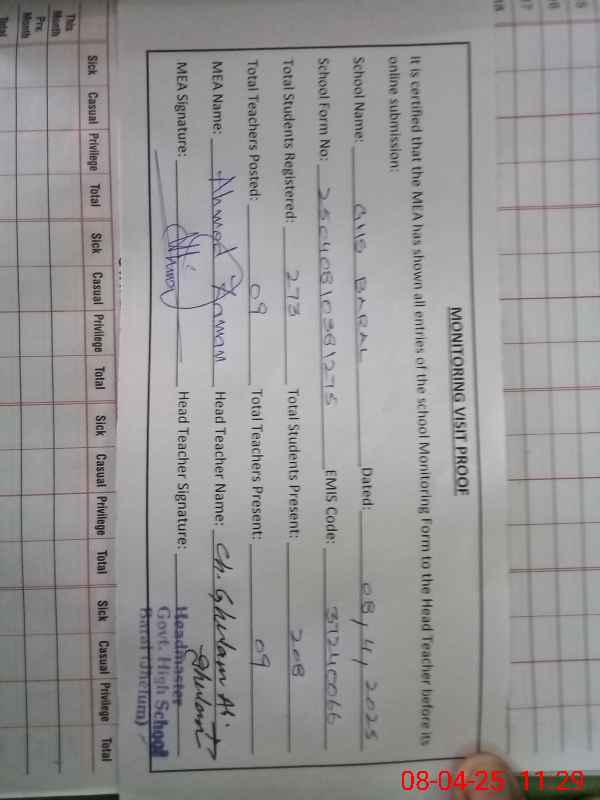 MONITORING VISIT PROOF
It is certified that the MEA has shown all entries of the school Monitoring Form to the Head Teacher before its
online submission:
School Name: GHS BARAL Dated: 08, 4, 2025
School Form No: EMIS Code: 37240066
Total Students Registered: 273 Total Students Present: 208
Total Teachers Posted: 09 Total Teachers Present: 09
MEA Name: Ahmed Head Teacher Name: Ch. Ghulam Ali
MEA Signature: Head Teacher Signature:
Headmaster
Govt. High School
Baral (Jhelum)
Sick Casual Privilege Total Sick Casual Privilege Total Sick Casual Privilege Total Sick Casual Privilege Total
This Month
Prv. Month
Total
18
17
16
08-04-25 11:29